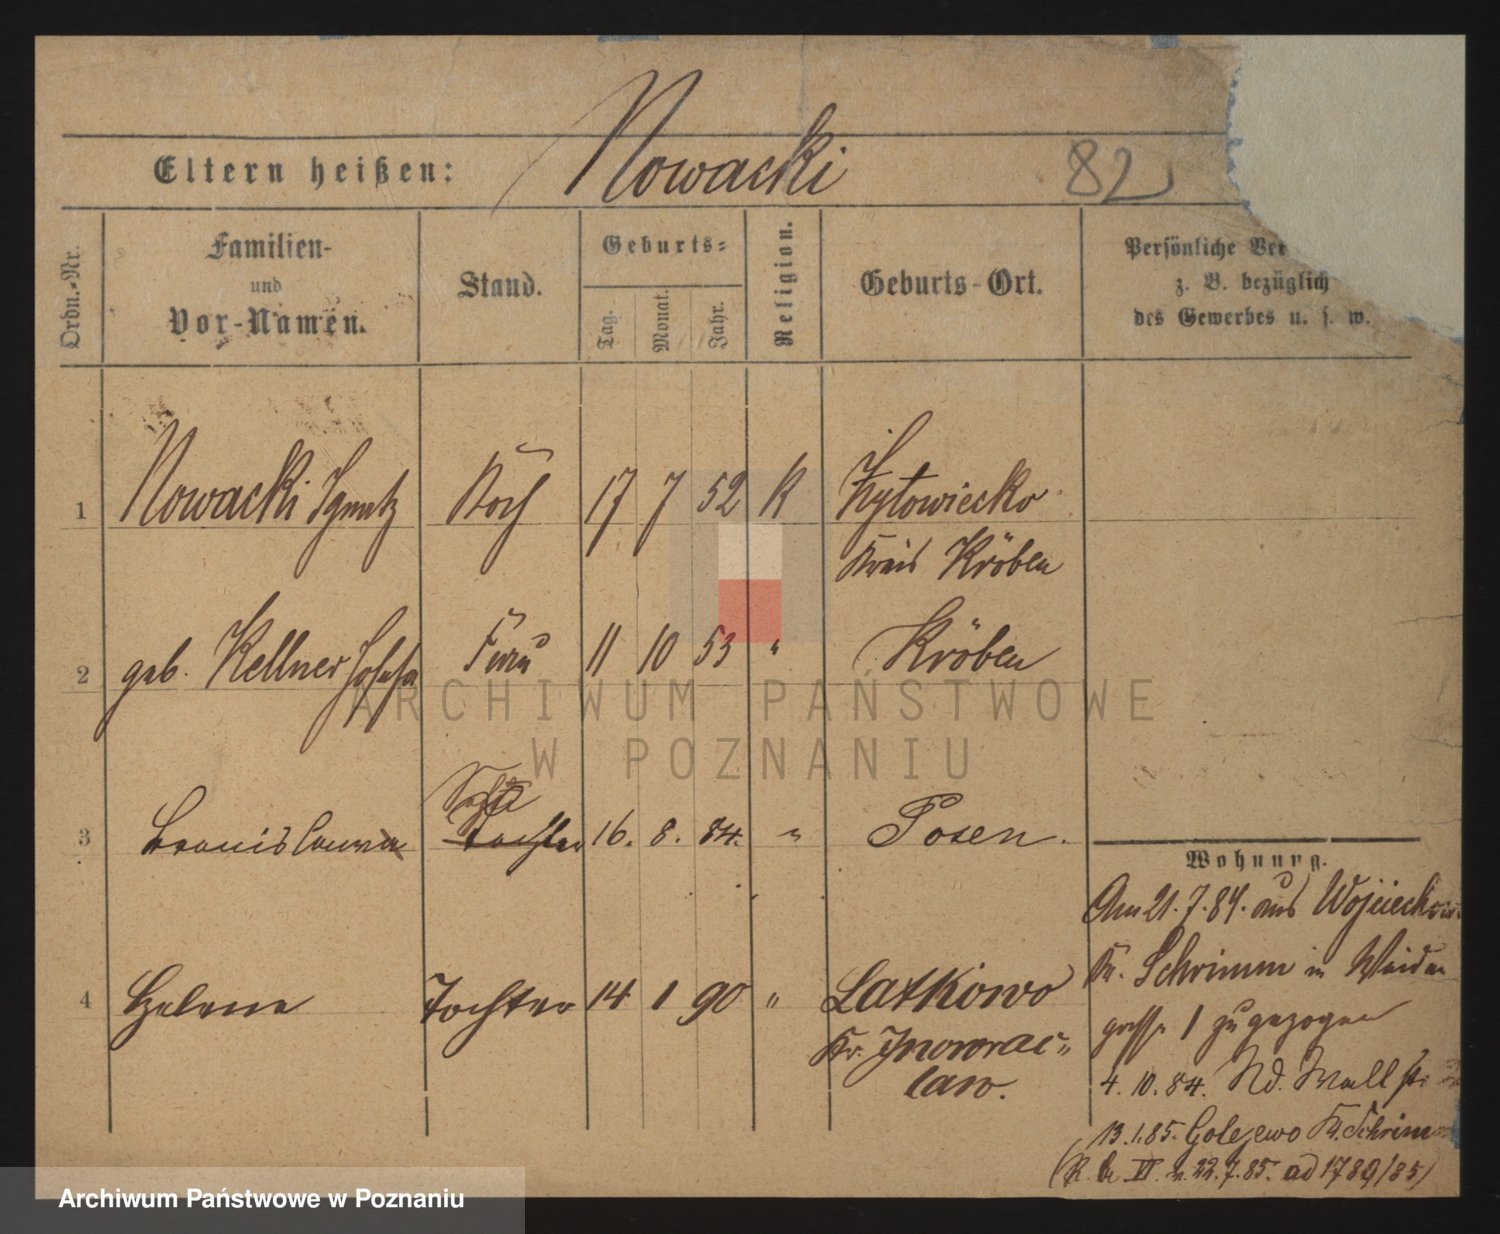 Nowacki
Eltern heißen:
82
Ordn.-Nr.
Familien-
und
Vor-Namen.
Stand.
Geburts-
Tag.
Monat.
Jahr.
Religion.
Geburts-Ort.
Persönliche Ver
z. B. bezüglich
des Gewerbes u. s. w.
1 Nowacki Ignatz Koch 17 7 52 K Żytowiecko
Kreis Kröben
2 geb. Kellner Josefa Frau 11 10 53 " Kröben
3 Bronislawa Sohn Tochter 16. 8. 84. " Posen.
4 Helene Tochter 14 1 90 " Latkowo
Kr. Inowrac=
law.
Wohnung.
Am 21.7.84. aus Wojciechow
Kr. Schrimm in Waiden
gasse 1 zugezogen
4. 10. 84. Wallstr
13.1.85. Golejewo Kr. Schrimm
(R. b. VI v. 22.7.85. ad 1789/85)
ARCHIWUM PAŃSTWOWE
W POZNANIU
Archiwum Państwowe w Poznaniu